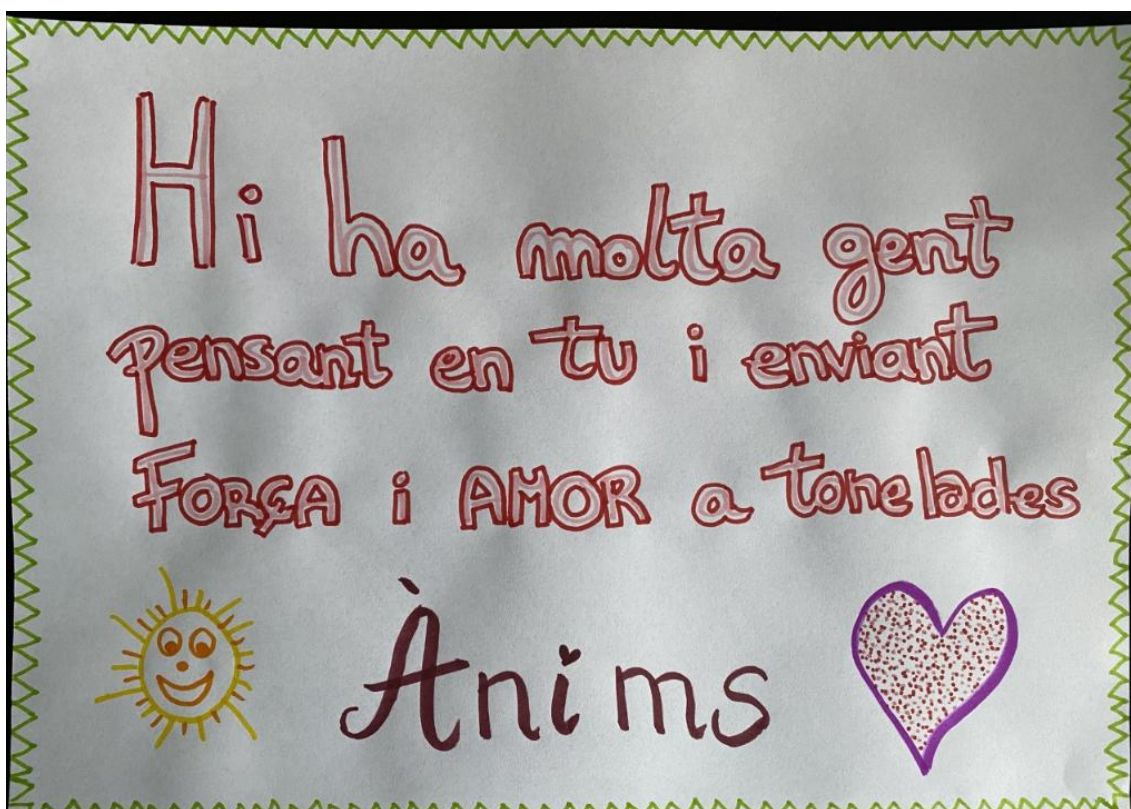 Hi ha molta gent
pensant en tu i enviant
FORÇA i AMOR a tonelades
Ànims